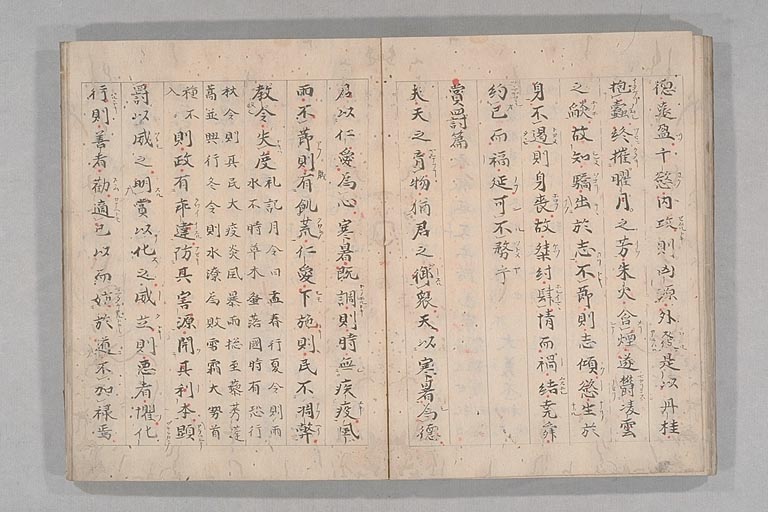 德喪盈于慾内攻則凶源外發是以丹桂
抱蠹終摧曜月之芳朱火含煙遂鬱凌雲
之燄故知驕出於志不節則志傾慾生於
身不遏則身喪故桀紂肆情而禍結堯舜
約己而福延可不務乎
賞罰篇
夫天之育物猶君之御衆天以寒暑為德
君以仁愛為心寒暑既調則時無疾疫風
雨不節則有飢荒仁愛下施則民不凋弊
教令失度礼記月令曰孟春行夏令則雨
水不時草木蚤落國時有恐行
秋令則其民大疫猋風暴雨揔至藜莠蓬
蒿並興行冬令則水潦為敗雪霜大摯首
種不入則政有乖違防其害源開其利本顯
罰以威之明賞以化之威立則惡者懼化
行則善者勸適己以而妨於道不加祿焉